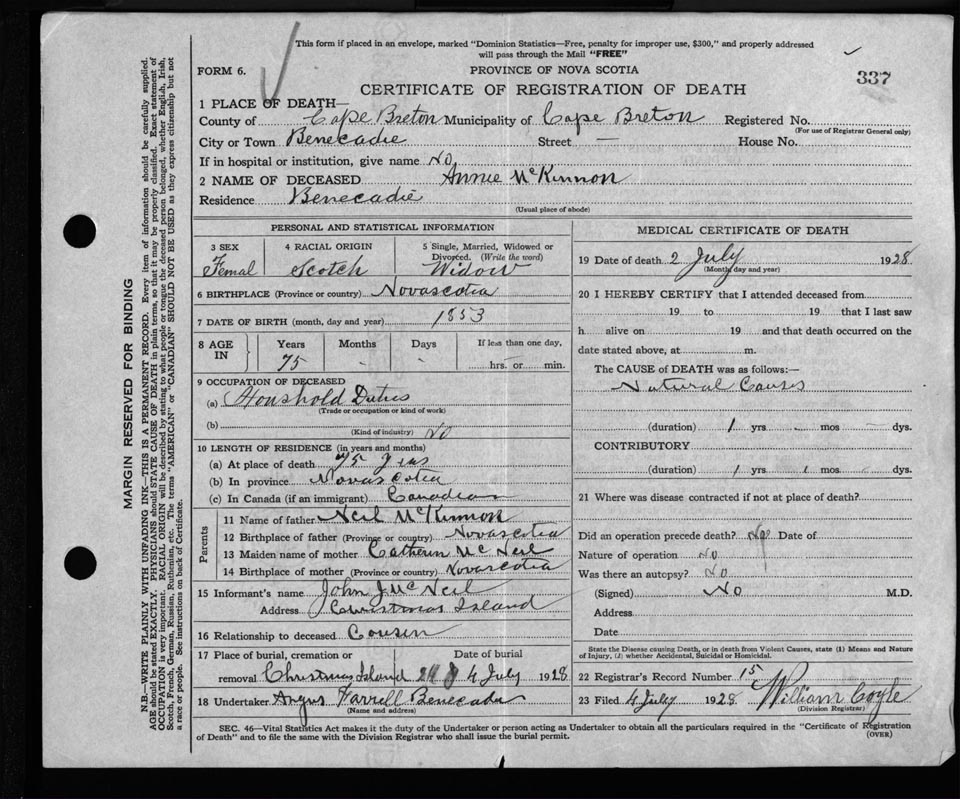 This form if placed in an envelope, marked "Dominion Statistics—Free, penalty for improper use, $300," and properly addressed
will pass through the Mail "FREE"
FORM 6.
PROVINCE OF NOVA SCOTIA
337
CERTIFICATE OF REGISTRATION OF DEATH
1 PLACE OF DEATH—
County of Cape Breton Municipality of Cape Breton Registered No.
(For use of Registrar General only)
City or Town Benecadie Street — House No.
If in hospital or institution, give name No
2 NAME OF DECEASED Annie McKinnon
Residence Benecadie
(Usual place of abode)
PERSONAL AND STATISTICAL INFORMATION
3 SEX 4 RACIAL ORIGIN 5 Single, Married, Widowed or
Divorced. (Write the word)
Femal Scotch Widow
6 BIRTHPLACE (Province or country) Novascotia
7 DATE OF BIRTH (month, day and year) 1853
8 AGE IN Years Months Days If less than one day,
75 - - hrs. or min.
9 OCCUPATION OF DECEASED
(a) Houshold Duties
(Trade or occupation or kind of work)
(b)
(Kind of industry) No
10 LENGTH OF RESIDENCE (in years and months)
(a) At place of death 75 yers
(b) In province Novascotia
(c) In Canada (if an immigrant) Canadian
Parents
11 Name of father Neil McKinnon
12 Birthplace of father (Province or country) Novascotia
13 Maiden name of mother Cathern McNeil
14 Birthplace of mother (Province or country) Novascotia
15 Informant's name John J McNeil
Address Christmas Island
16 Relationship to deceased Cousen
17 Place of burial, cremation or Date of burial
removal Christmas Island 4 July 1928
18 Undertaker Angus Farrell Benecadie
(Name and address)
MEDICAL CERTIFICATE OF DEATH
19 Date of death 2 July 1928
(Month, day and year)
20 I HEREBY CERTIFY that I attended deceased from
19 to 19 that I last saw
h alive on 19 and that death occurred on the
date stated above, at m.
The CAUSE of DEATH was as follows:—
Natural Causes
(duration) 1 yrs - mos - dys.
CONTRIBUTORY
(duration) 1 yrs 1 mos - dys.
21 Where was disease contracted if not at place of death?
Did an operation precede death? No Date of
Nature of operation No
Was there an autopsy? No
(Signed) No M.D.
Address
Date
State the Disease causing Death, or in death from Violent Causes, state (1) Means and Nature
of Injury, (2) whether Accidental, Suicidal or Homicidal.
22 Registrar's Record Number 15
23 Filed 4 July 1928 William Coyle
(Division Registrar)
SEC. 46—Vital Statistics Act makes it the duty of the Undertaker or person acting as Undertaker to obtain all the particulars required in the "Certificate of Registration
of Death" and to file the same with the Division Registrar who shall issue the burial permit.
(OVER)
MARGIN RESERVED FOR BINDING
N.B.—WRITE PLAINLY WITH UNFADING INK—THIS IS A PERMANENT RECORD. Every item of information should be carefully supplied.
AGE should be stated EXACTLY. PHYSICIANS should STATE CAUSE OF DEATH in plain terms, so that it may be properly classified. Exact statement of
OCCUPATION is very important. RACIAL ORIGIN will be described by stating to what people or tongue the deceased person belonged, whether English, Irish,
Scotch, French, German, Russian, Ruthenian, etc. The terms "AMERICAN" or "CANADIAN" SHOULD NOT BE USED as they express citizenship but not
a race or people. See instructions on back of Certificate.